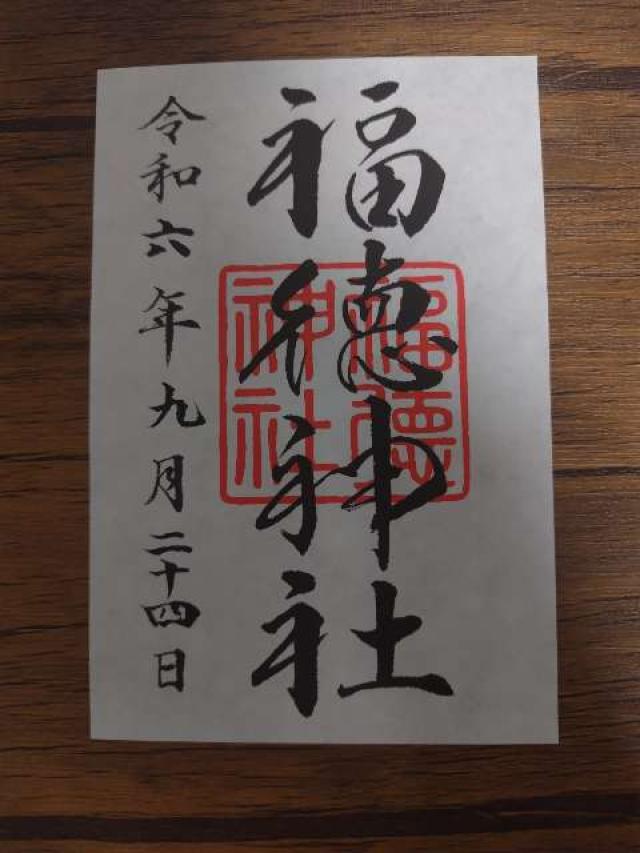 福徳神社
福徳神社
令和六年九月二十四日